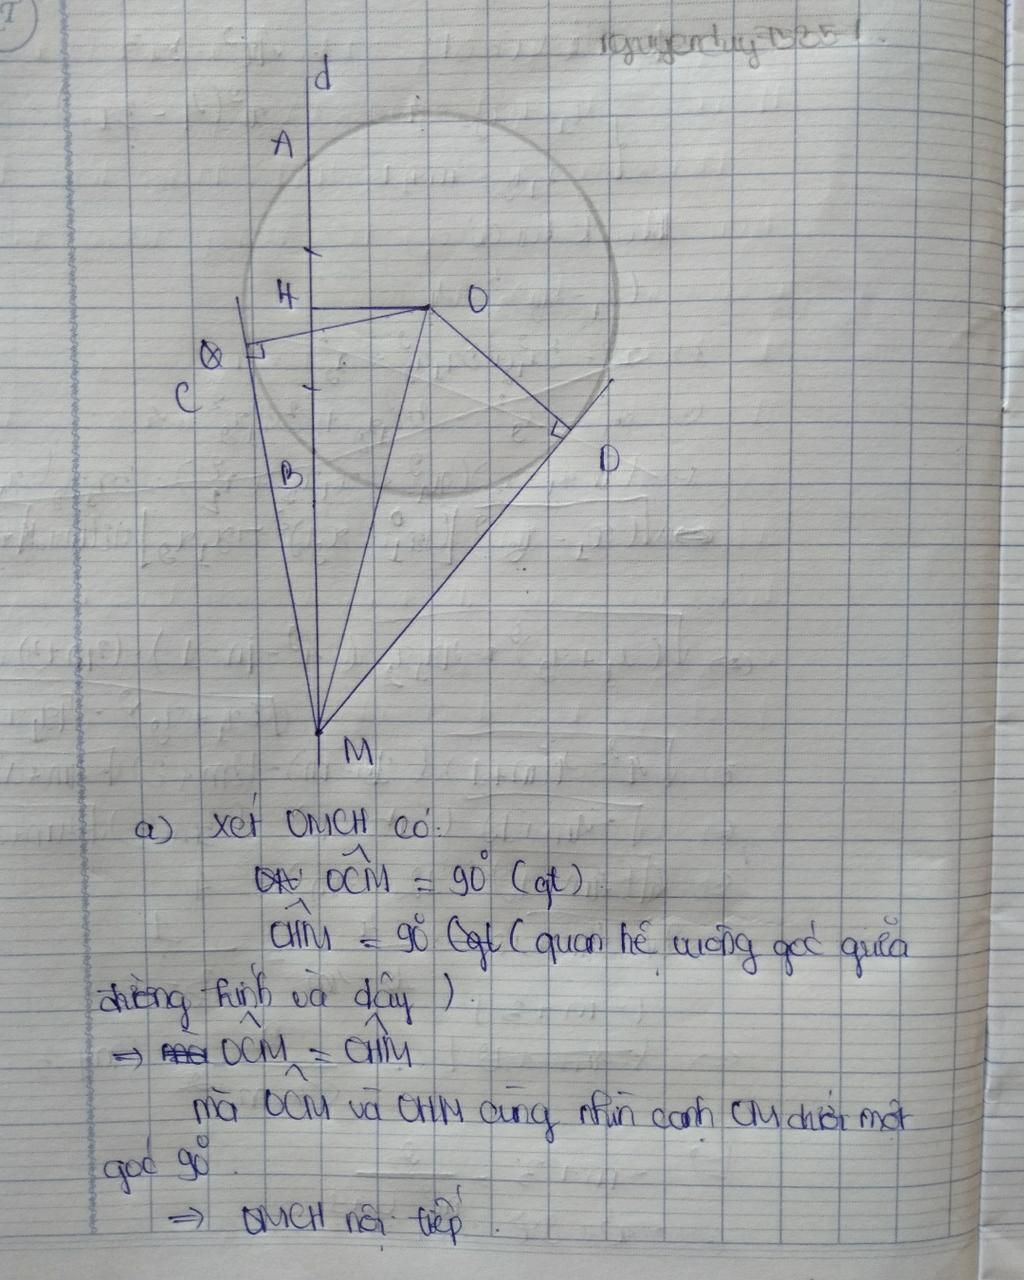 nguyenduy75251
d
A
H
O
C
B
D
M
a) xét OMCH có:
OCM = 90° (gt)
OHM = 90° (gt (quan hệ vuông góc giữa
đường kính và dây).
⇒ OCM = OHM
mà OCM và OHM cùng nhìn cạnh OM dưới một
góc 90°.
⇒ OMCH nội tiếp.